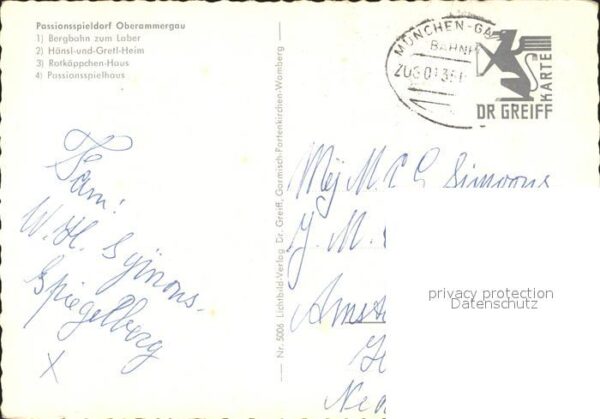 Passionsspieldorf Oberammergau
1) Bergbahn zum Laber
2) Hänsl-und-Gretl-Heim
3) Rotkäppchen-Haus
4) Passionsspielhaus
Fam:
W. H. Symons.
Spiegelberg
X
Nr. 5006 Lichtbild-Verlag Dr. Greiff, Garmisch-Partenkirchen-Wamberg
MÜNCHEN-GA
BAHNP
ZUG 0135
DR GREIFF
KARTE
Mej M. C. C. Simoons
J. M.
Amst
Ne
privacy protection
Datenschutz